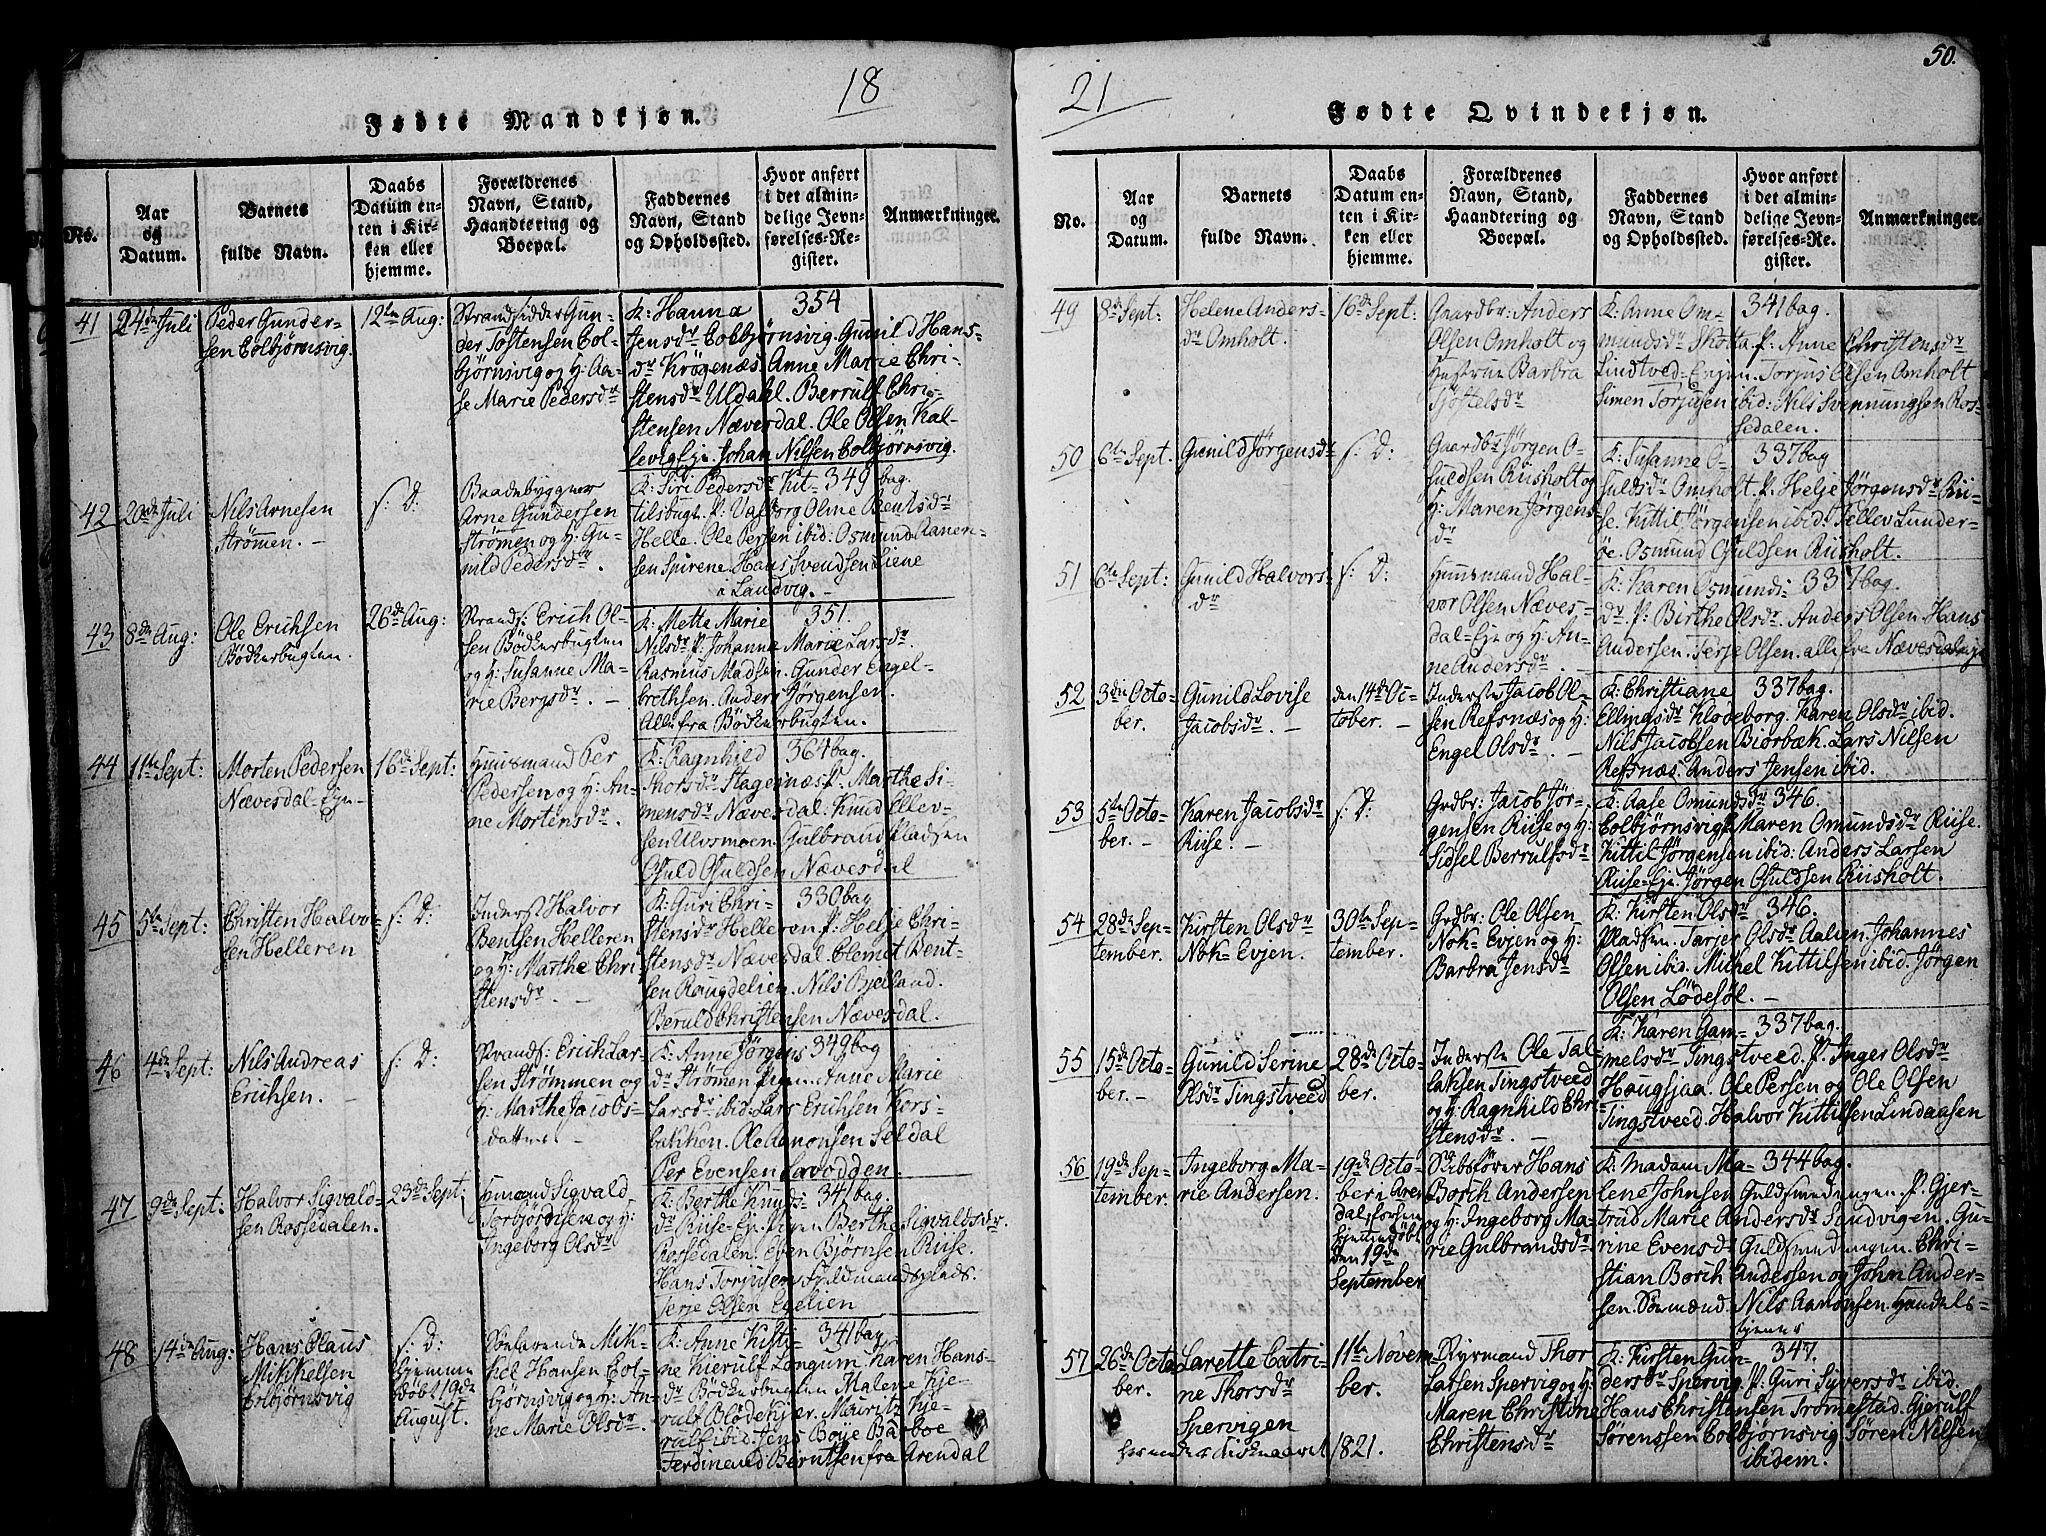 18
Fødte Mandkjøn.
No.
Aar
og
Datum.
Barnets
fulde Navn.
Daabs
Datum en-
ten i Kir-
ken eller
hjemme.
Forældrenes
Navn, Stand,
Haandtering og
Boepæl.
Faddernes
Navn, Stand
og Opholdssted.
Hvor anført
i det almin-
delige Jevn-
førelses-Re-
gister.
Anmærkninger.
41
24de Juli
Peder Gunder-
sen Colbjørnsvig.
12te Aug:
Strandsidder Gun-
der Tostensen Col-
bjørnsvig og H: Aa-
se Marie Pedersdr
K: Hanna
Jensdr Colbjørnsvig. Gunild Hans-
dr Krøgenæs. Anne Marie Chri-
stensdr Uldahl. Berrulf Chri-
stensen Nævesdal. Ole Olsen Kal-
levig Eje. Johan Nilsen Colbjørnsvig.
354
42
20de Juli
Nils Arnesen
Strømen. -
f: D:
Baadebygger
Arne Gundersen
Strømen og H: Gu-
nild Pedersdr.
K: Siri Pedersdr Kit-
tilsbugt. P: Valborg Oline Bentsdr
Helle. Ole Persen ibid: Osmund Aanen-
sen Spirene. Hans Svendsen Liene
i Landvig. -
349 bag.
43
8de Aug:
Ole Erichsen
Bödkerbugten.
26de Aug:
Strands: Erich Ol-
sen Bödkerbugten
og H: Susanne Ma-
rie Bergsdr. -
K: Metta Marie
Nilsdr P: Johanne Marie Larsdr
Rasmus Madsen. Gunder Engel-
brethsen. Anders Jørgensen.
Alle fra Bödkerbugten.
351.
44
11te Sept:
Morten Pedersen
Nævesdal-Eje-
16de Sept:
Huusmand Per
Pedersen og H: An-
ne Mortensdr.
K: Ragnhild
Thorsdr Stagenæs P: Marthe Si-
mensdr Nævesdal. Knud Ellev-
sen Ulvsmoen. Gulbrand Pladsen
Gjuld Gjuldsen Nævesdal
364 bag.
45
5te Sept:
Christen Halvo-
sen Helleren
f: D:
Inderst Halvor
Bentsen Helleren
og H: Marthe Chri-
stensdr. -
K: Guri Chri-
stensdr Helleren P: Helje Chri-
stensdr Nævesdal. Clemet Bent-
sen Rougdelien. Nils Bjelland.
Beruld Christensen Nævesdal.
330 bag
46
4de Sept:
Nils Andreas
Erichsen. -
f: D:
Strands: Erich Lar-
sen Strømmen og
H: Marthe Jacobs-
datter -
K: Anne Jørgens
dr Strømen. Pigen Anne Marie
Larsdr ibid: Lars Erichsen Kors-
bakken. Ole Aanonsen Seldal
Per Evensen Lavodden.
349 bag
47
9de Sept:
Halvor Sigvald-
sen Rossedalen.
23de Sept.
Huusmand Sigvald
Torbjørnsen og H:
Ingeborg Olsdr
K: Berthe Knuds
dr Riise-Eje. Pigen Berthe Sigvaldsdr.
Rossedalen. Even Bjørnsen Riise.
Hans Torjusen
Terje Olsen
341 bag.
48
14de Aug:
Hans Claus
Mikkelsen
Colbjørnsvig
f: D:
Hjemme
döbt 19de
August.
Søefarende Mik-
kel Hansen Col-
bjørnsvig og H: An-
ne Marie Olsdr.
K: Anne Kisti-
ne Kierulf Longum. Karen Hans-
dr Bödkerbugten. Malene Kje-
rulf Blödekjær. Mauritz Kje-
rulf ibid. Jens Boye Barboe
Ferdinand Berntsen fra Arendal
341 bag
50.
21
Fødte Qvindekjøn.
No.
Aar
og
Datum.
Barnets
fulde Navn.
Daabs
Datum en-
ten i Kir-
ken eller
hjemme.
Forældrenes
Navn, Stand,
Haandtering og
Boepæl.
Faddernes
Navn, Stand
og Opholdssted.
Hvor anført
i det almin-
delige Jevn-
førelses-Re-
gister.
Anmærkninger.
49
8de Sept:
Helene Anders-
dr Omholt.
16de Sept:
Gaardbr: Anders
Olsen Omholt og
Hustrue Barbra
Sjöstelsdr
K: Anne Om-
mundsdr Skotta. P: Anne Christensdr
Lindtved-Ejen. Torjus Olsen Omholt
Simen Torjusen ibid: Nils Svennungsen Ros-
sedalen.
341 bag.
50
6te Sept.
Gunild Jørgensdr
f: D:
Gaardbr Jørgen O-
suldsen Riisholt og
H: Maren Jørgens-
dr
K: Susanne O-
suldsdr Omholt. P: Helje Jørgensdr Rii-
se. Kittil Jørgensen ibid: Tellev Lunder-
öe. Osmund Osuldsen Riisholt.
337 bag
51
6te Sept:
Gunild Halvors-
dr
f: D:
Huusmand Hal-
vor Olsen Næves-
dal-Eje og H: An-
ne Andersdr. -
K: Karen Osmunds
dr. P: Birthe Olsdr. Anders Olsen. Hans
Andersen. Terje Olsen. alle fra Nævesdaleje
337 bag.
52
3die Octo-
ber.
Gunild Lovise
Jacobsdr. -
den 14de Oc-
tober. -
Inderste Jacob Ol-
sen Refsnæs og H:
Engel Olsdr. -
K: Christiane
Ellingsdr Kloveborg. Karen Olsdr ibid.
Nils Jacobsen Biorbæk. Lars Nilsen
Refsnæs. Anders Jensen ibid.
337 bag.
53
5te Octo-
ber. -
Karen Jacobsdr
Riise. -
f: D:
Grdbr: Jacob Jør-
gensen Riise og H:
Sidsel Berrulfsdr
K: Aase Osmundsdr
Colbjørnsvig. Maren Omundsdr Riise.
Kittil Jørgensen ibid: Anders Larsen
Riise-Eje. Jørgen Osuldsen Riisholt.
346.
54
28de Sep-
tember.
Kirsten Olsdr
Nok-Evjen.
30te Sep-
tember.
Grdbr: Ole Olsen
Nok-Evjen og H:
Barbra Jensdr
K: Kirsten Olsdr
Pladsen. Tarjer Olsdr Aalien. Johannes
Olsen ibid. Michel Kittilsen ibid. Jørgen
Olsen Lödesöl. -
346.
55
15de Octo-
ber. -
Gunild Serine
Olsdr Tingstveed
28de Octo-
ber.
Inderste Ole Tal-
laksen Tingstveed
og H: Ragnhild Chr-
stensdr. -
K: Karen Gam-
melsdr Tingstveed. P: Inger Olsdr
Hougsjaa. Ole Persen og Ole Olsen
Tingstveed. Halvor Kittilsen Lindaasen
337 bag.
56
19de Sep-
tember.
Ingeborg Ma-
rie Andersen.
19de Octo-
ber i Aren
dal forsen
hjemmedöbt
den 19de
September
Skibsfører Hans
Borch Andersen
og H: Ingeborg Ma-
rie Gulbrandsdr
K: Madam Ma-
lene Johnsen Guldsmedengen. P: Gjer-
trud Marie Andersdr Sandvigen. Gu-
rine Evensdr Guldsmedengen. Chri-
stian Borch Andersen og John Ander-
sen. Søemænd. Nils Aanonsen. Handels-
tjener
344 bag.
57
26de Octo-
ber.
Larette Catri-
ne Thorsdr
Spervigen
11te Novem-
ber.
Styrmand Thor
Larsen Spervig og H:
Maren Christine
Christensdr
K: Kirsten Gun-
dersdr Spervig. P: Guri Syversdr ibid.
Hans Christensen Tromestad. Gjerulf
Sørenssen Colbjørnsvig. Søren Nilsen
ibidem.
347.
1821.